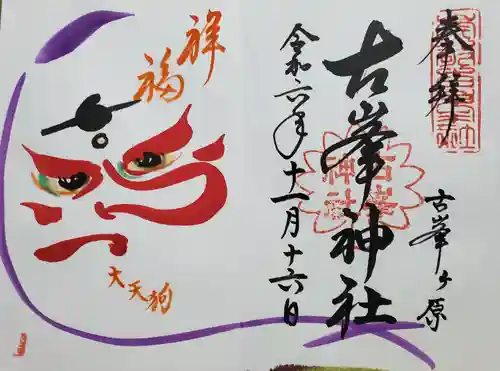 奉拝
古峯ヶ原
古峯神社
令和六年十一月十六日
祥
福
大天狗
古峯
神社